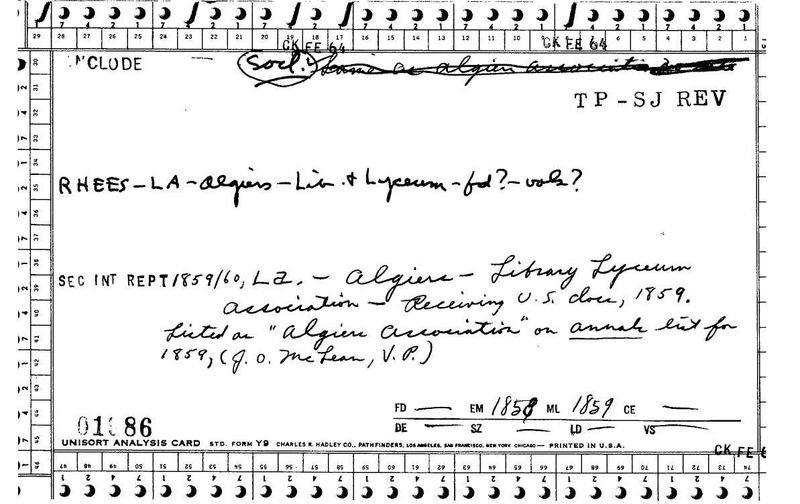 29 28 27 26 25 24 23 22 21 20 19 18 17 16 15 14 13 12 11 10 9 8 7 6 5 4 3 2 1
CK FE 64 CK FE 64
INCLUDE (Socl.?) Same as Algiers Association
TP-SJ REV
RHEES-LA-Algiers-Lib. & Lyceum-fd?-vols?
SEC INT REPT 1859/60, La. - Algiers - Library Lyceum
Association - Receiving U.S. docs, 1859.
Listed as "Algiers Association" on annals list for
1859, (J. O. McLean, V. P.)
FD — EM 1858 ML 1859 CE —
DE — SZ — LD — VS —
01 86
UNISORT ANALYSIS CARD STD. FORM Y9 CHARLES R. HADLEY CO., PATHFINDERS, LOS ANGELES, SAN FRANCISCO, NEW YORK CHICAGO — PRINTED IN U.S.A.
CK FE 6